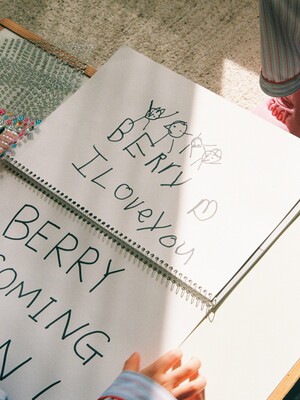 BERRY
I LoveyoU
BERRY
COMING